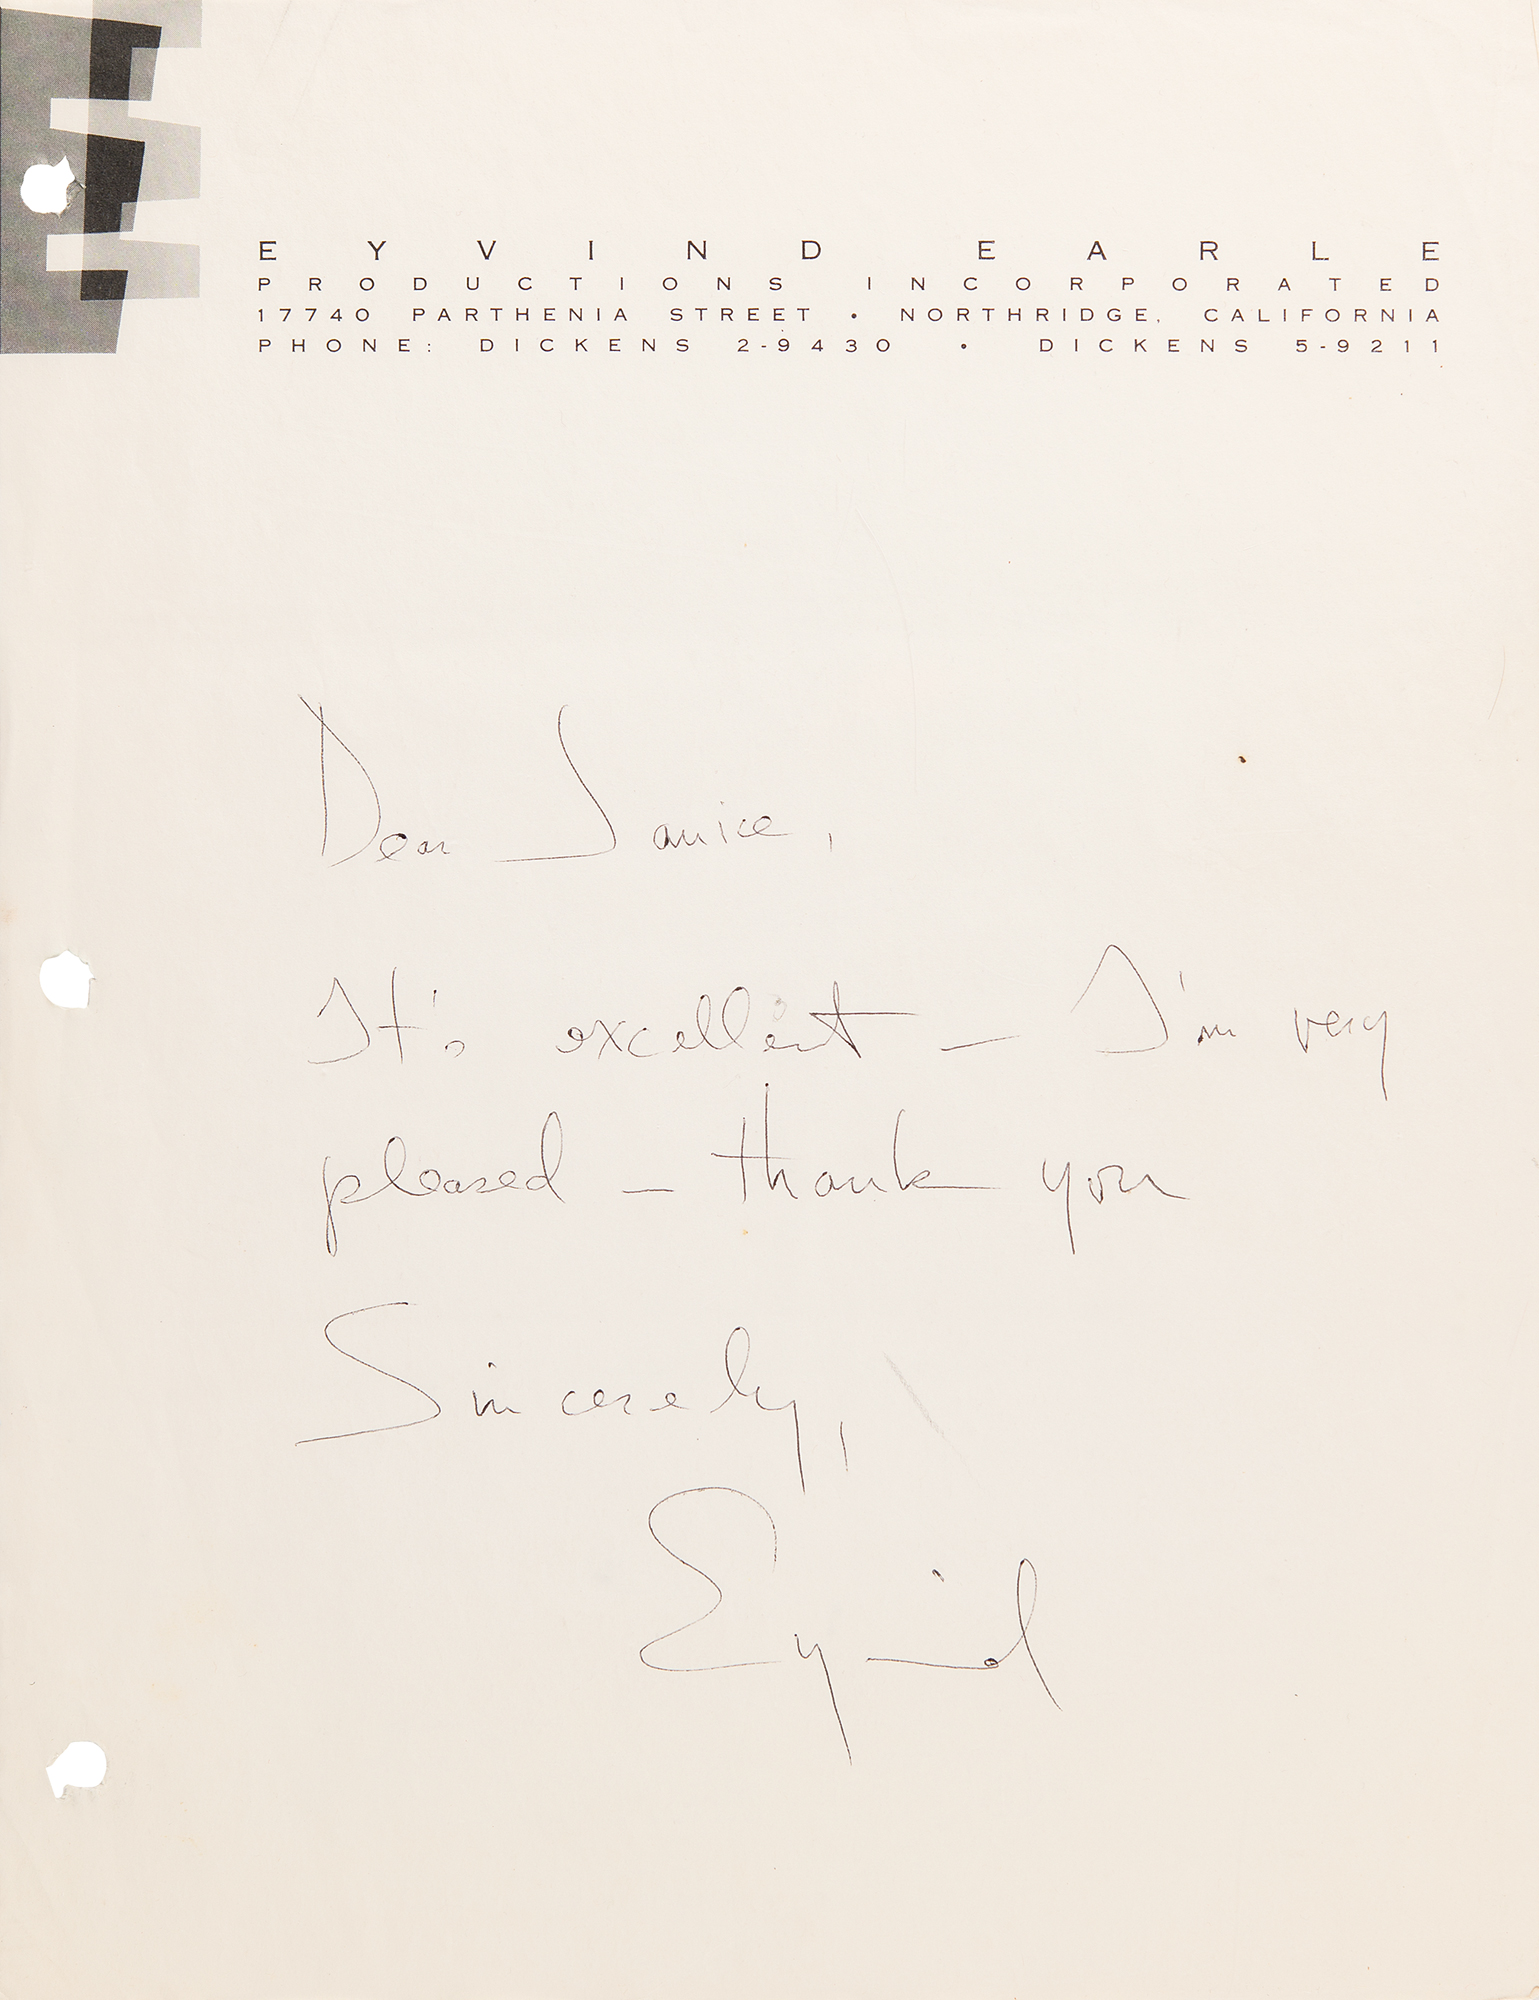 EYVIND EARLE
PRODUCTIONS INCORPORATED
17740 PARTHENIA STREET • NORTHRIDGE, CALIFORNIA
PHONE: DICKENS 2-9430 • DICKENS 5-9211
Dear Janice,
It's excellent – I'm very
pleased – thank you
Sincerely,
Eyvind